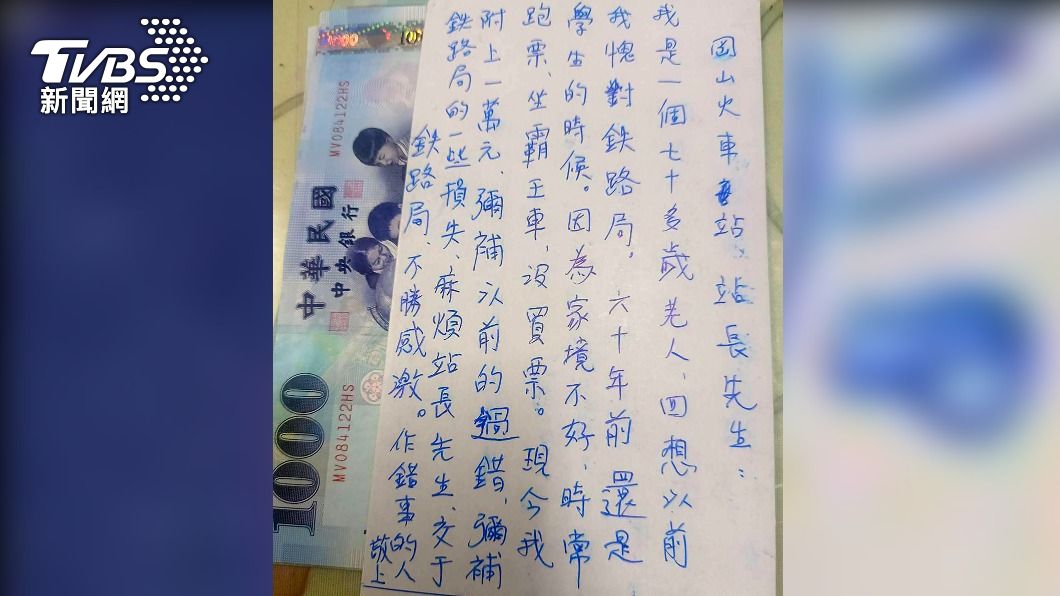 TVBS
新聞網
岡山火車站站長先生:
我是一個七十多歲老人、回想以前
我愧對鉄路局。六十年前還是
學生的時候。因為家境不好,時常
跑票、坐霸王車,沒買票。現今我
附上一萬元、彌補以前的過錯,彌補
鉄路局的一些損失、麻煩站長先生、交于
鉄路局、不勝感激。作錯事的人
敬上
中華民國
中央銀行
1000
MV084122HS
MV084122HS